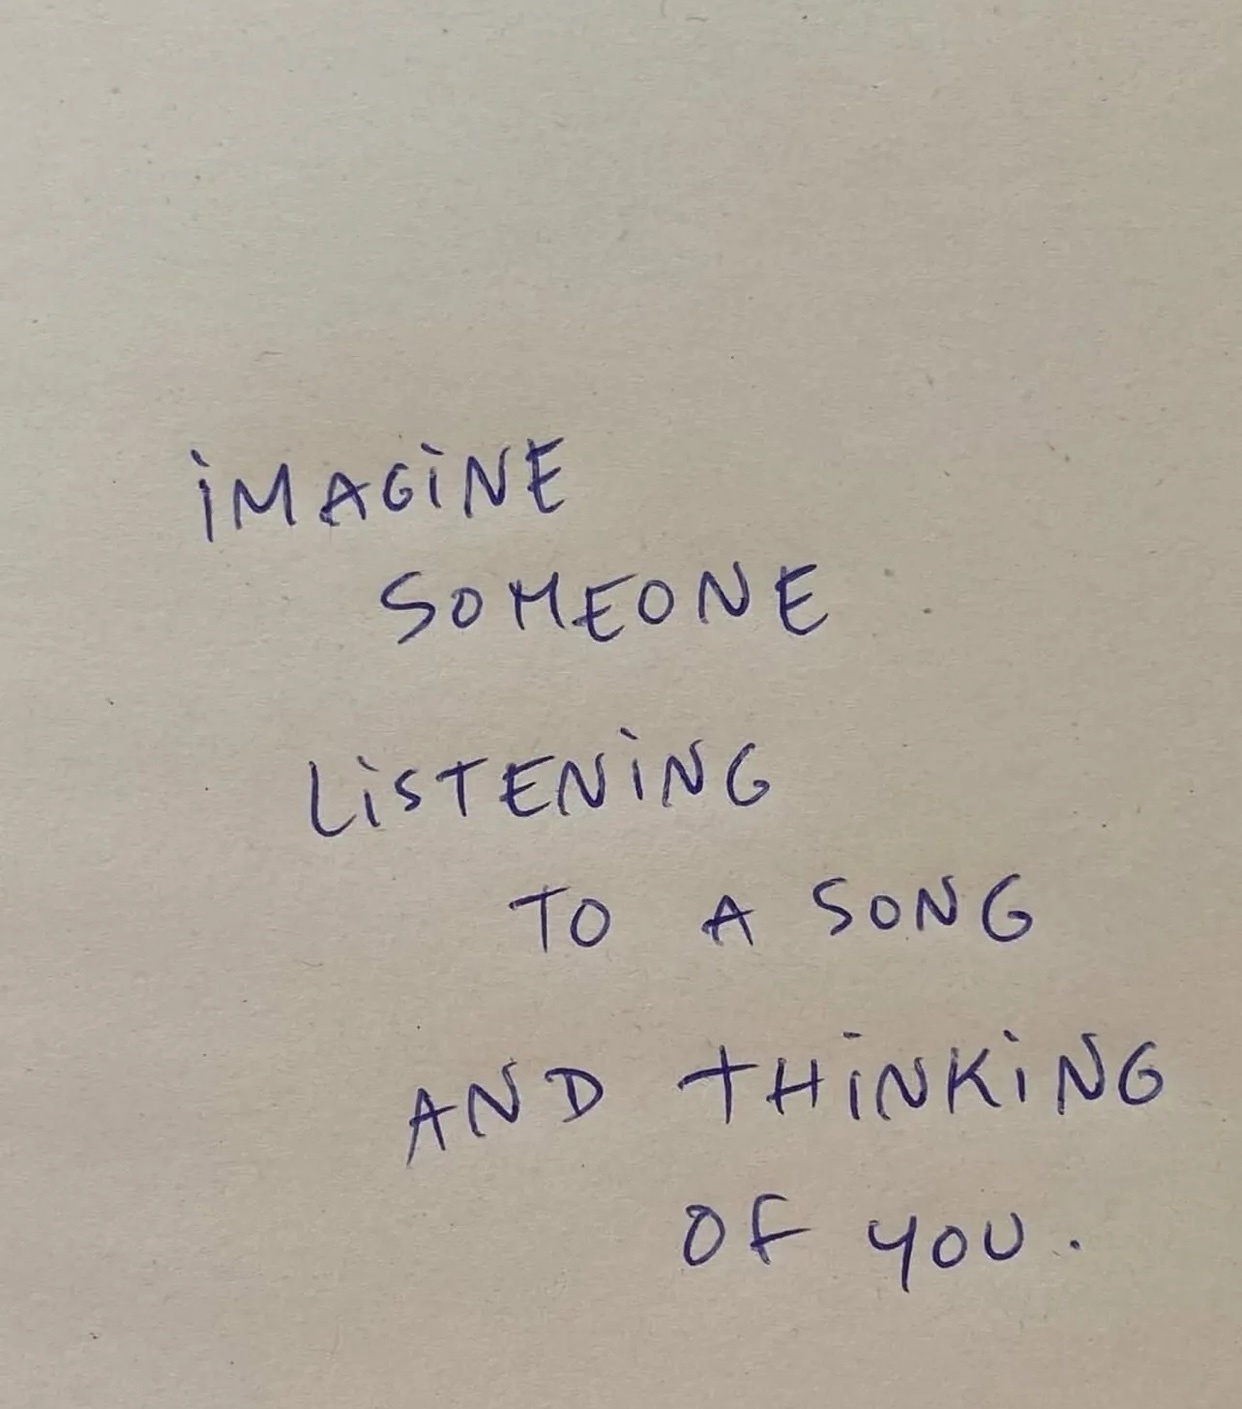 iMAGiNE
SOMEONE
LiSTENiNG
TO A SONG
AND THiNKiNG
OF YOU.